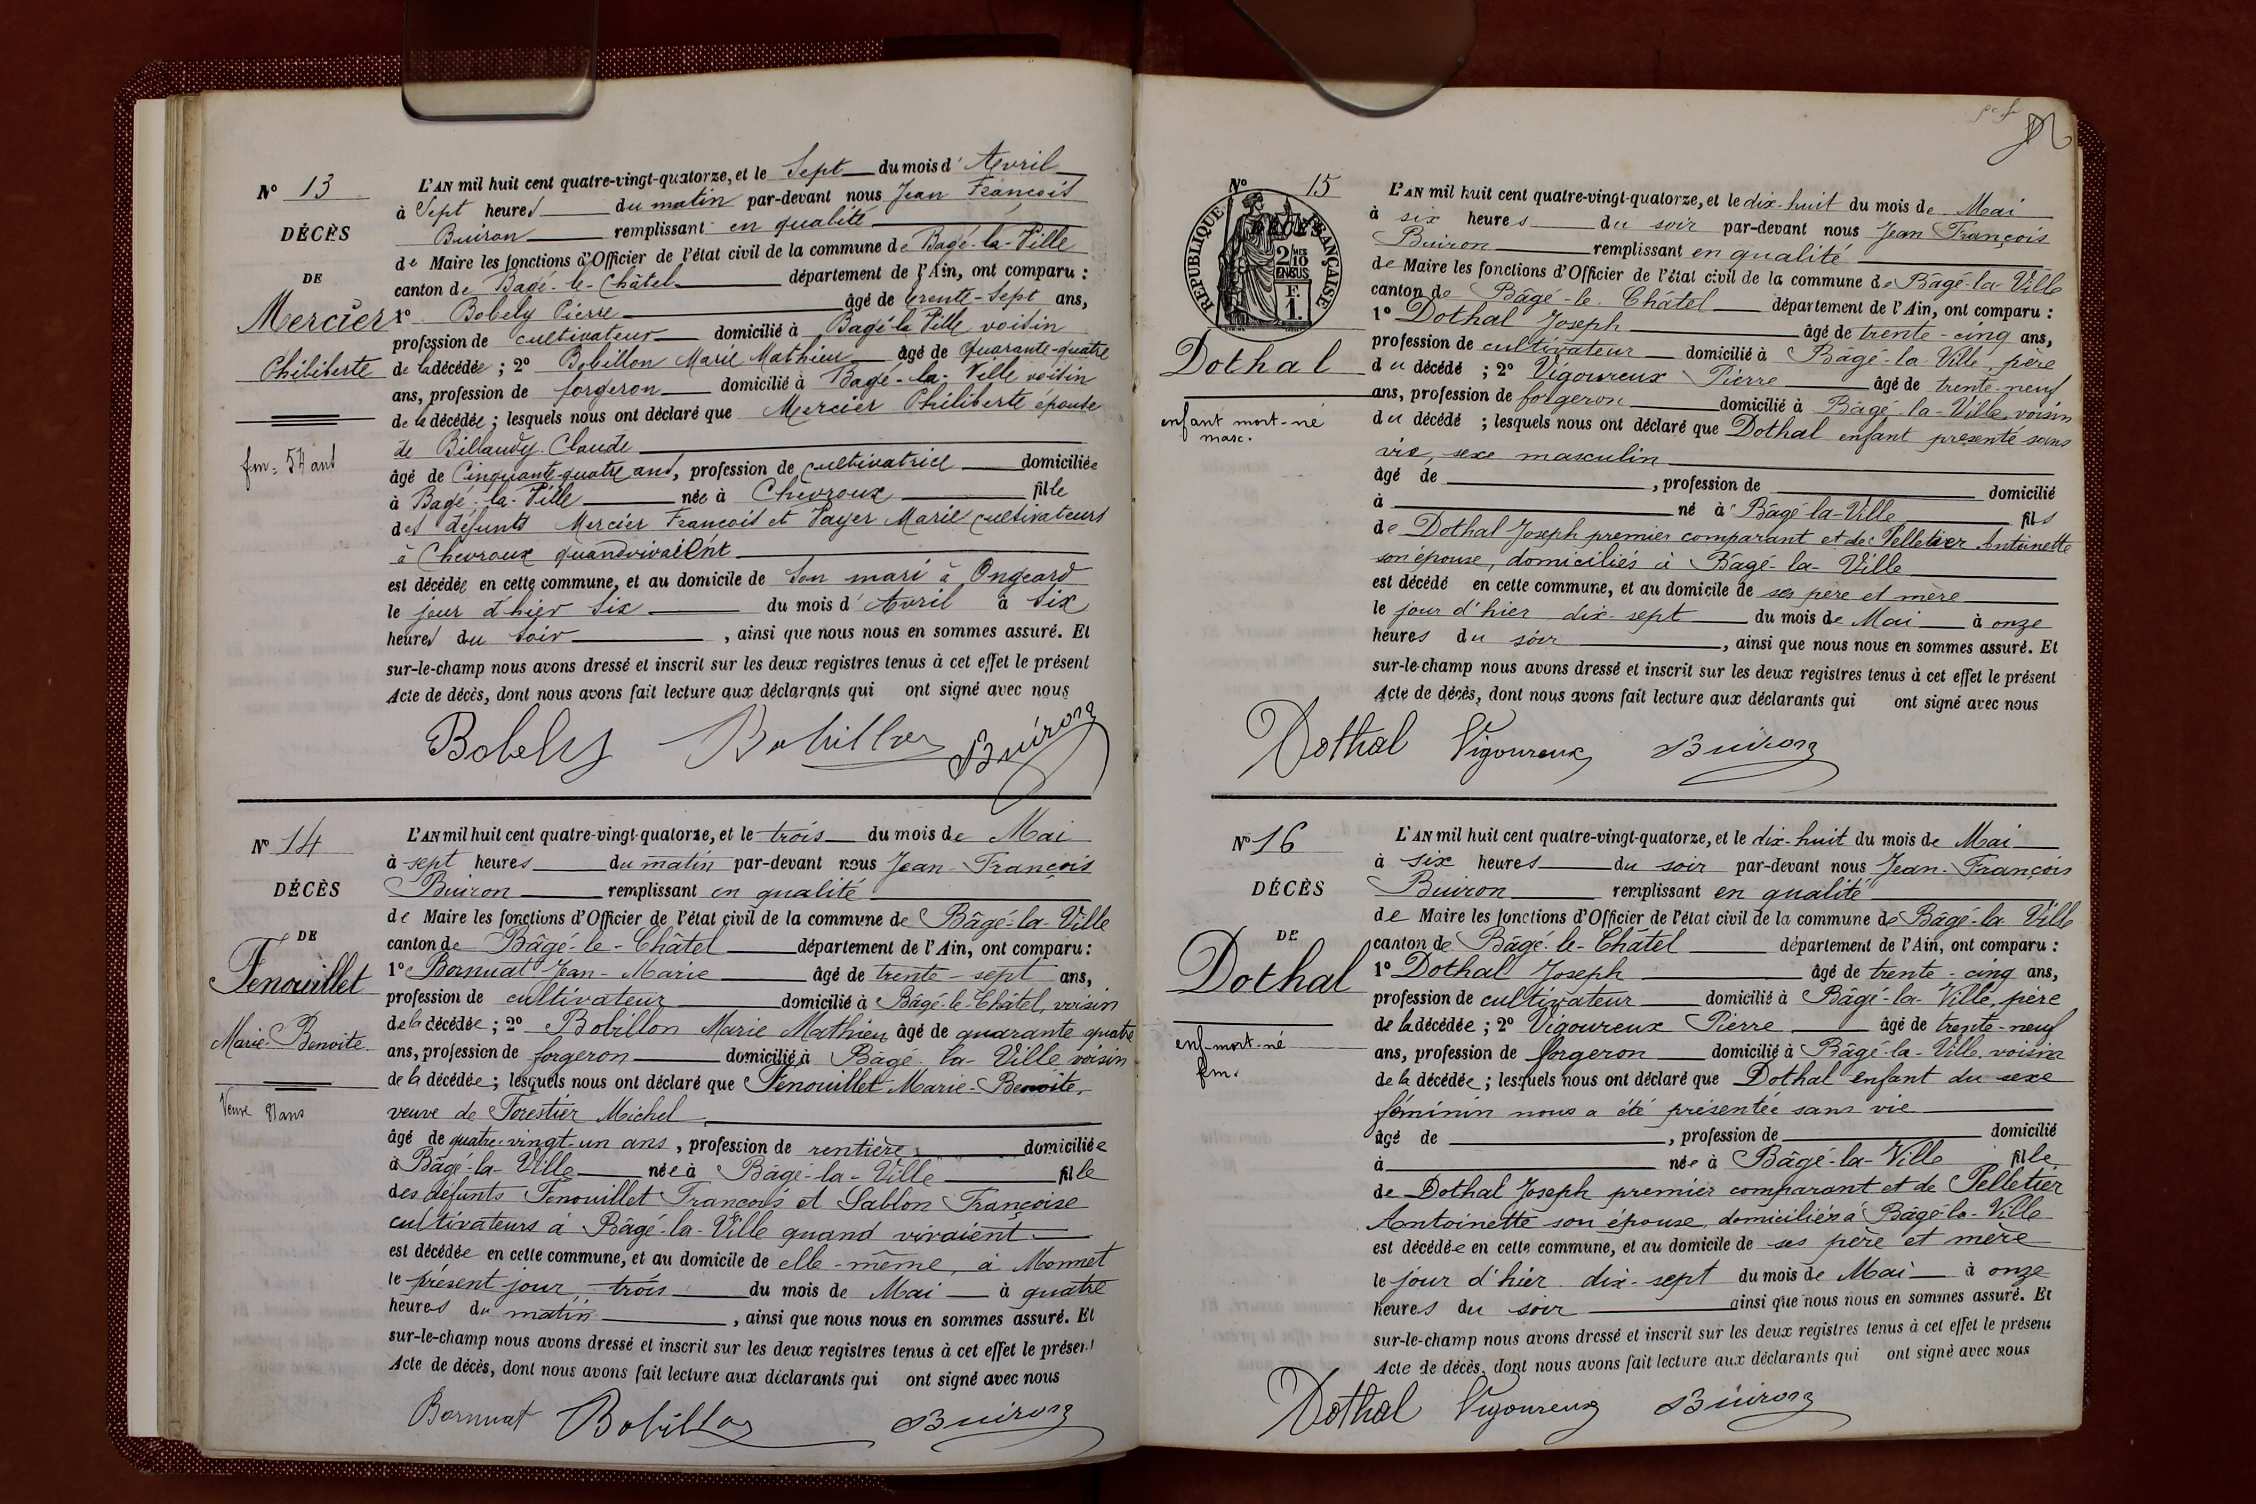 N° 13
DÉCÈS
DE
Mercier
Philiberte
fm: 54 ans
L'AN mil huit cent quatre-vingt-quatorze, et le Sept du mois d'Avril
à Sept heures du matin par-devant nous Jean François
Buiron remplissant en qualité
de Maire les fonctions d'Officier de l'état civil de la commune de Bagé-la-Ville
canton de Bagé-le-Châtel département de l'Ain, ont comparu :
1° Bobely Pierre âgé de trente-sept ans,
profession de cultivateur domicilié à Bagé-la Ville voisin
de la décédée ; 2° Bobillon Marie Mathieu âgé de Quarante-quatre
ans, profession de forgeron domicilié à Bagé-la-Ville voisin
de la décédée ; lesquels nous ont déclaré que Mercier Philiberte épouse
de Billaudy Claude
âgé de Cinquante-quatre ans, profession de cultivatrice domiciliée
à Bagé-la-Ville née à Chevroux fille
des défunts Mercier François et Payer Marie cultivateurs
à Chevroux quand vivaient
est décédée en cette commune, et au domicile de son mari à Ongeard
le jour d'hier six du mois d'Avril à six
heures du soir , ainsi que nous nous en sommes assuré. Et
sur-le-champ nous avons dressé et inscrit sur les deux registres tenus à cet effet le présent
Acte de décès, dont nous avons fait lecture aux déclarants qui ont signé avec nous
Bobely Bobillon Buiron
N° 14
DÉCÈS
DE
Fenouillet
Marie-Benoite
Veuve 81 ans
L'AN mil huit cent quatre-vingt-quatorze, et le trois du mois de Mai
à sept heures du matin par-devant nous Jean-François
Buiron remplissant en qualité
de Maire les fonctions d'Officier de l'état civil de la commune de Bâgé-la-Ville
canton de Bâgé-le-Châtel département de l'Ain, ont comparu :
1° Bornuat Jean-Marie âgé de trente-sept ans,
profession de cultivateur domicilié à Bâgé-le-Châtel, voisin
de la décédée ; 2° Bobillon Marie Mathieu âgé de quarante quatre
ans, profession de forgeron domicilié à Bâgé-la-Ville voisin
de la décédée ; lesquels nous ont déclaré que Fenouillet Marie-Benoite,
veuve de Forestier Michel
âgé de quatre-vingt-un ans, profession de rentière domiciliée
à Bâgé-la-Ville née à Bâgé-la-Ville fille
des défunts Fenouillet François et Sablon Françoise
cultivateurs à Bâgé-la-Ville quand vivaient
est décédée en cette commune, et au domicile de elle-même, à Monnet
le présent jour, trois du mois de Mai à quatre
heures du matin , ainsi que nous nous en sommes assuré. Et
sur-le-champ nous avons dressé et inscrit sur les deux registres tenus à cet effet le présent
Acte de décès, dont nous avons fait lecture aux déclarants qui ont signé avec nous
Bornuat Bobillon Buiron
N° 15
DÉCÈS
RÉPUBLIQUE FRANÇAISE
2/10 MES
EN SUS
F.
1.
Dothal
enfant mort-né
masc.
L'AN mil huit cent quatre-vingt-quatorze, et le dix-huit du mois de Mai
à six heures du soir par-devant nous Jean François
Buiron remplissant en qualité
de Maire les fonctions d'Officier de l'état civil de la commune de Bâgé-la-Ville
canton de Bâgé-le-Châtel département de l'Ain, ont comparu :
1° Dothal Joseph âgé de trente-cinq ans,
profession de cultivateur domicilié à Bâgé-la-Ville, père
du décédé ; 2° Vigoureux Pierre âgé de trente-neuf
ans, profession de forgeron domicilié à Bâgé-la-Ville, voisin
du décédé ; lesquels nous ont déclaré que Dothal enfant présenté sans
vie, sexe masculin
âgé de , profession de domicilié
à né à Bâgé-la-Ville fils
de Dothal Joseph premier comparant et de Pelletier Antoinette
son épouse, domiciliés à Bâgé-la-Ville
est décédé en cette commune, et au domicile de ses père et mère
le jour d'hier dix-sept du mois de Mai à onze
heures du soir , ainsi que nous nous en sommes assuré. Et
sur-le-champ nous avons dressé et inscrit sur les deux registres tenus à cet effet le présent
Acte de décès, dont nous avons fait lecture aux déclarants qui ont signé avec nous
Dothal Vigoureux Buiron
N° 16
DÉCÈS
DE
Dothal
enf-mort-né
fm.
L'AN mil huit cent quatre-vingt-quatorze, et le dix-huit du mois de Mai
à six heures du soir par-devant nous Jean-François
Buiron remplissant en qualité
de Maire les fonctions d'Officier de l'état civil de la commune de Bâgé-la-Ville
canton de Bâgé-le-Châtel département de l'Ain, ont comparu :
1° Dothal Joseph âgé de trente-cinq ans,
profession de cultivateur domicilié à Bâgé-la-Ville, père
de la décédée ; 2° Vigoureux Pierre âgé de trente-neuf
ans, profession de forgeron domicilié à Bâgé-la-Ville, voisin
de la décédée ; lesquels nous ont déclaré que Dothal enfant du sexe
féminin nous a été présentée sans vie
âgé de , profession de domicilié
à née à Bâgé-la-Ville fille
de Dothal Joseph premier comparant et de Pelletier
Antoinette son épouse, domiciliés à Bâgé-la-Ville
est décédée en cette commune, et au domicile de ses père et mère
le jour d'hier dix-sept du mois de Mai à onze
heures du soir ainsi que nous nous en sommes assuré. Et
sur-le-champ nous avons dressé et inscrit sur les deux registres tenus à cet effet le présent
Acte de décès, dont nous avons fait lecture aux déclarants qui ont signé avec nous
Dothal Vigoureux Buiron